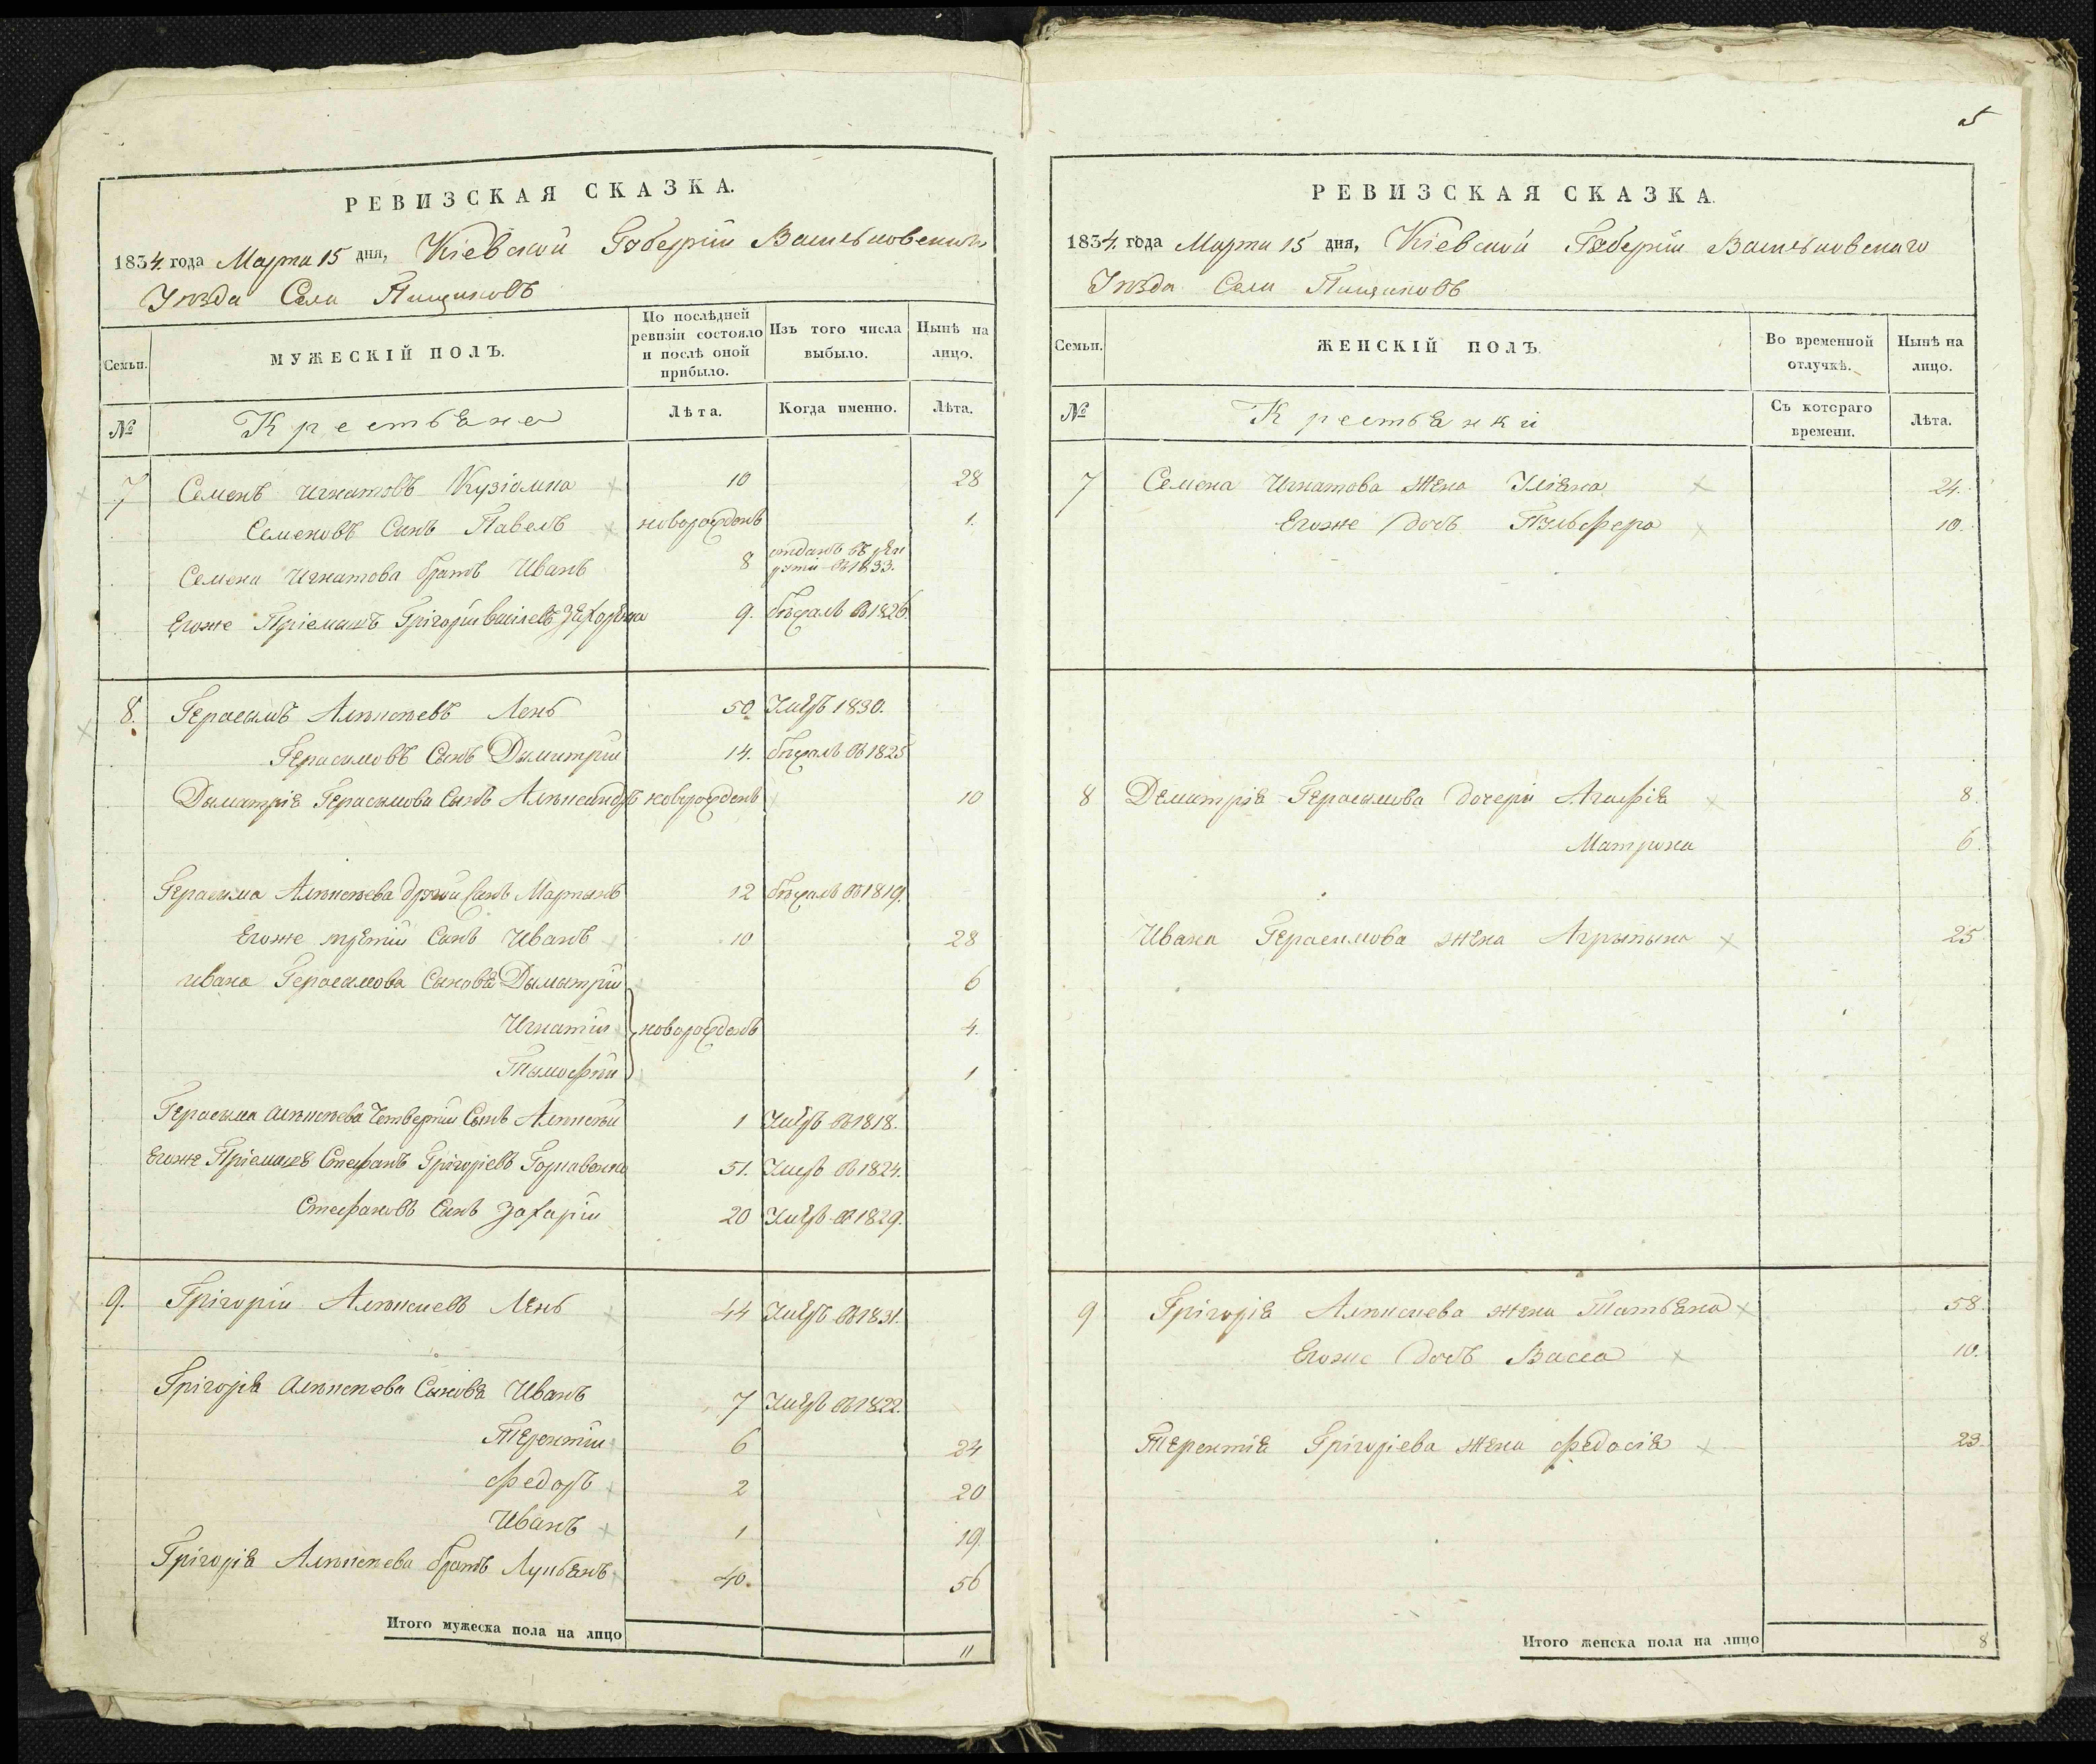 РЕВИЗСКАЯ СКАЗКА.
1834 года Марта 15 дня, Кіевской Губерніи Васильковскаго
Уѣзда Села Пищиковъ
Семьи.
МУЖЕСКІЙ ПОЛЪ.
По послѣдней ревизіи состояло и послѣ оной прибыло.
Изъ того числа выбыло.
Нынѣ на лицо.
№
Крестьяне
Лѣта.
Когда именно.
Лѣта.
7 Семенъ Игнатовъ Кузіомка 10 28
Семеновъ Сынъ Павелъ новорожденъ 1.
Семена Игнатова братъ Иванъ 8 отданъ въ рекруты въ 1833.
Егоже Пріемышъ Григорій Василевъ 9. бѣжалъ въ 1826
8. Герасимъ Алексѣевъ Лень 50. Умеръ 1830.
Герасимовъ Сынъ Дымитрій 14. бѣжалъ въ 1825
Дымитрія Герасымова Сынъ Алѣксандръ новорожденъ 10
Герасыма Алѣксѣева другій Сынъ Мартынъ 12 бѣжалъ въ 1819.
Егоже третій Сынъ Иванъ 10 28
Ивана Герасимова Сыновя Дымытрій 6
Игнатій новорожденъ 4.
Тымофѣй 1
Герасыма Алѣксѣева Четвертій Сынъ Алѣксѣй 1 Умеръ въ 1818.
Егоже Пріемышъ Стефанъ Григоріевъ 51. Умеръ въ 1824.
Стефановъ Сынъ Захарій 20 Умеръ въ 1829.
9. Григорій Алѣксиевъ Лень 44 Умеръ въ 1831.
Григорія Алѣксѣева Сыновя Иванъ 7 Умеръ въ 1822.
Терентій 6 24
Федоръ 2 20
Иванъ 1 19.
Григорія Алѣксѣева братъ Лукьянъ 40. 56
Итого мужеска пола на лицо 11
5
РЕВИЗСКАЯ СКАЗКА.
1834 года Марта 15 дня, Кіевской Губерніи Васильковскаго
Уѣзда Села Пищиковъ
Семьи.
ЖЕНСКІЙ ПОЛЪ.
Во временной отлучкѣ.
Нынѣ на лицо.
№
Крестьянки
Съ котораго времени.
Лѣта.
7 Семена Игнатова жена Уліяна 24.
Егоже дочь 10.
8 Дематрія Герасымова дочери Агафія 8.
Матрона 6.
Ивана Герасимова жена Агрыпына 25
9 Григорія Алѣксиева жена Татьяна 58.
Егоже дочь Васса 10.
Терентія Григоріева жена Федосія 23.
Итого женска пола на лицо 8